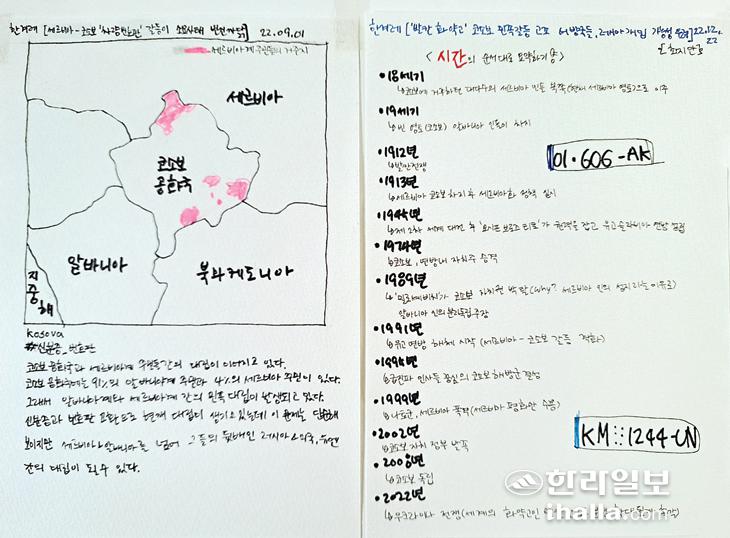 한겨레 [세르비아-코소보 '차량번호판' 갈등이 소요사태 번진까닭] 22.09.01
세르비아계 주민들의 거주지
세르비아
코소보
공화국
알바니아
북마케도니아
지중해
Kosova
신분증, 번호판
코소보 공화국과 세르비아계 주민들간의 대립이 이어지고 있다.
코소보 공화국에는 91%의 알바니아계 주민과 4%의 세르비아 주민이 있다.
그래서 알바니아계와 세르비아계 간의 민족 대립이 발생되고 있다.
신분증과 번호판 교환으로 번째 대립이 생기고 있는데 이 문제는 단순해
보이지만 세르비아와 알바니아를 넘어 그들의 뒷배인 러시아와 미국,
간의 대립이 될 수 있다.
한겨레 ['발칸 화약고' 코소보 민족갈등 고조 서방국들, 러시아 개입 가능성 우려] 22.12.22
<시간의 순서대로 요약하기>
•18세기
↳코소보에 거주하던 대다수의 세르비아 인들 북쪽(현재 세르비아 영토)으로 이주
•19세기
↳빈 영토(코소보) 알바니아 인들이 차지
•1912년
↳발칸전쟁
01·606-AK
•1913년
↳세르비아 코소보 차지 후 세르비아화 정책 실시
•1945년
↳제 2차 세계 대전 후 '요시프 브로즈 티토'가 권력을 잡고 유고슬라비아 연방 설립
•1974년
↳코소보, 연방내 자치주 승격
•1989년
↳'밀로셰비치'가 코소보 자치권 박탈(Why? 세르비아 인의 성지라는 이유로)
알바니아 인의 분리독립주장
•1991년
↳유고 연방 해체 시작 (세르비아-코소보 갈등 격화)
•1995년
↳급진파 인사들 중심의 코소보 해방군 결성
•1999년
↳나토군, 세르비아 폭격(세르비아 평화안 수용)
KM 1244-UN
•2002년
↳코소보 자치 정부 발족
•2008년
↳코소보 독립
•2022년
↳우크라이나 전쟁(세계의 화약고인
한라일보
ihalla.com